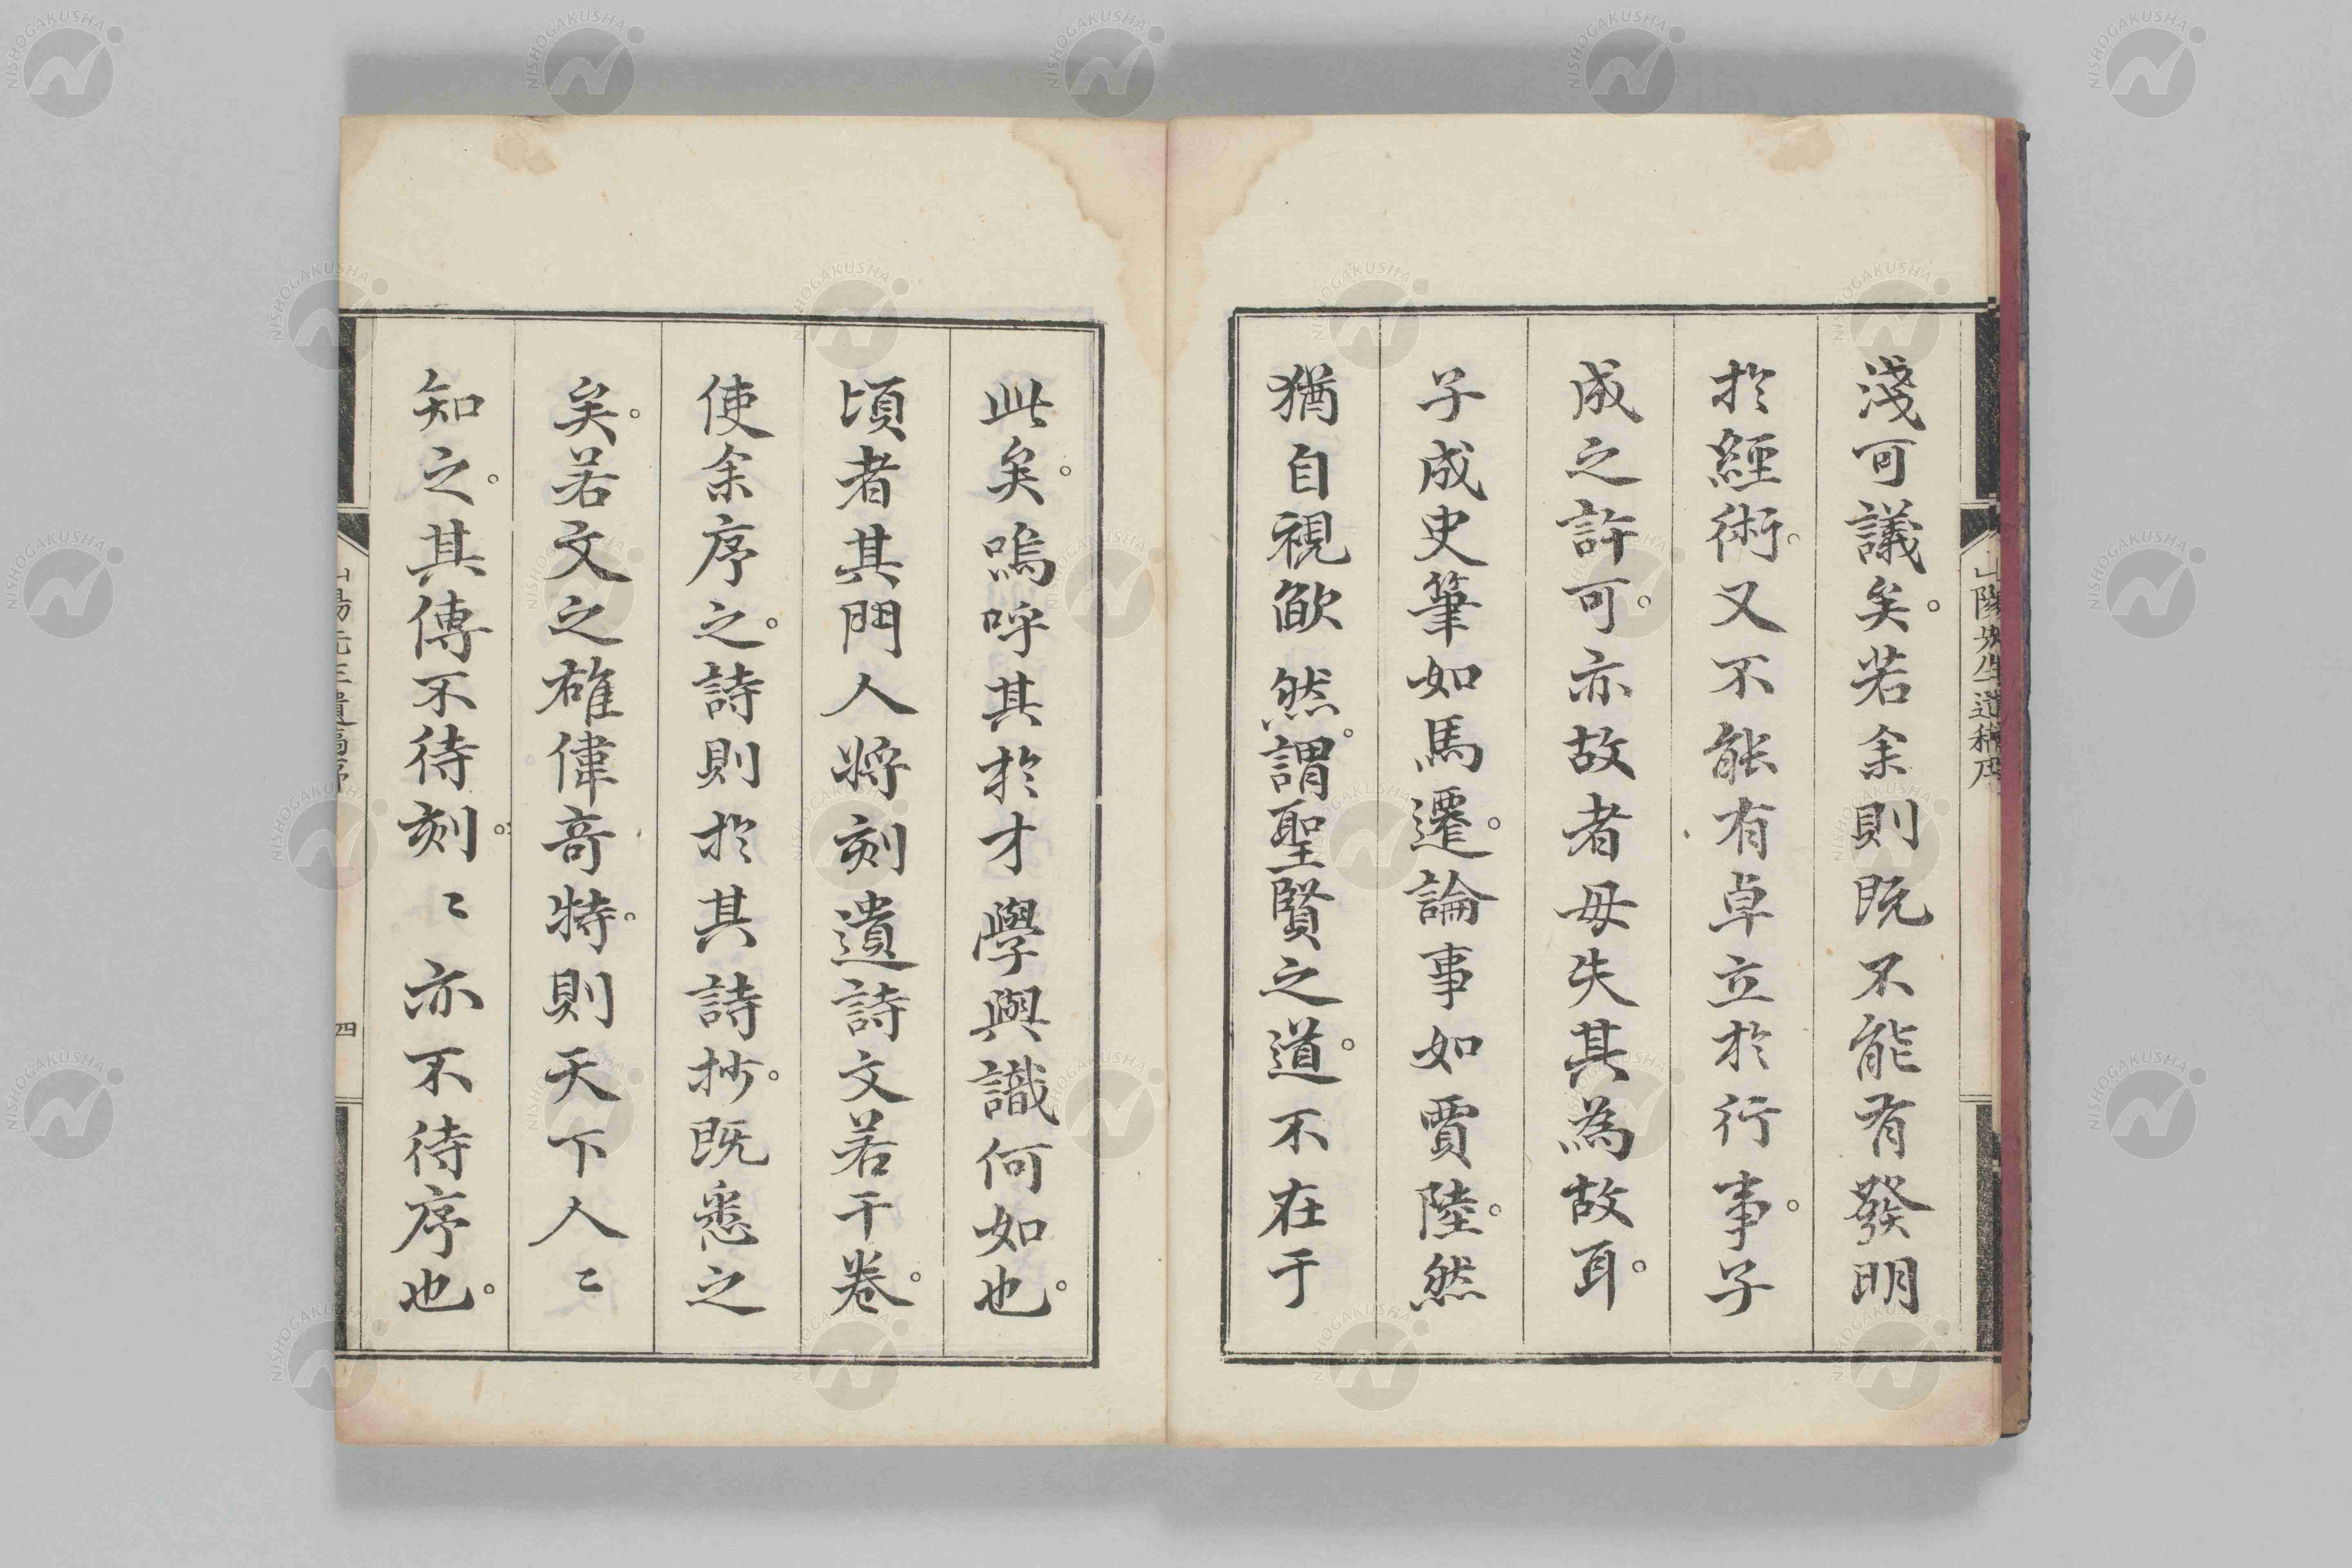 淺可議矣。若余則既不能有發明
於經術。又不能有卓立於行事。子
成之許可。亦故者毋失其為故耳。
子成史筆如馬遷。論事如賈陸。然
猶自視欿然。謂聖賢之道。不在于
此矣。嗚呼其於才學與識何如也。
頃者其門人將刻遺詩文若干卷。
使余序之。詩則於其詩抄。既悉之
矣。若文之雄偉奇特。則天下人〻
知之。其傳不待刻。〻亦不待序也。
山陽先生遺稿序
山陽先生遺稿序
四
NISHOGAKUSHA